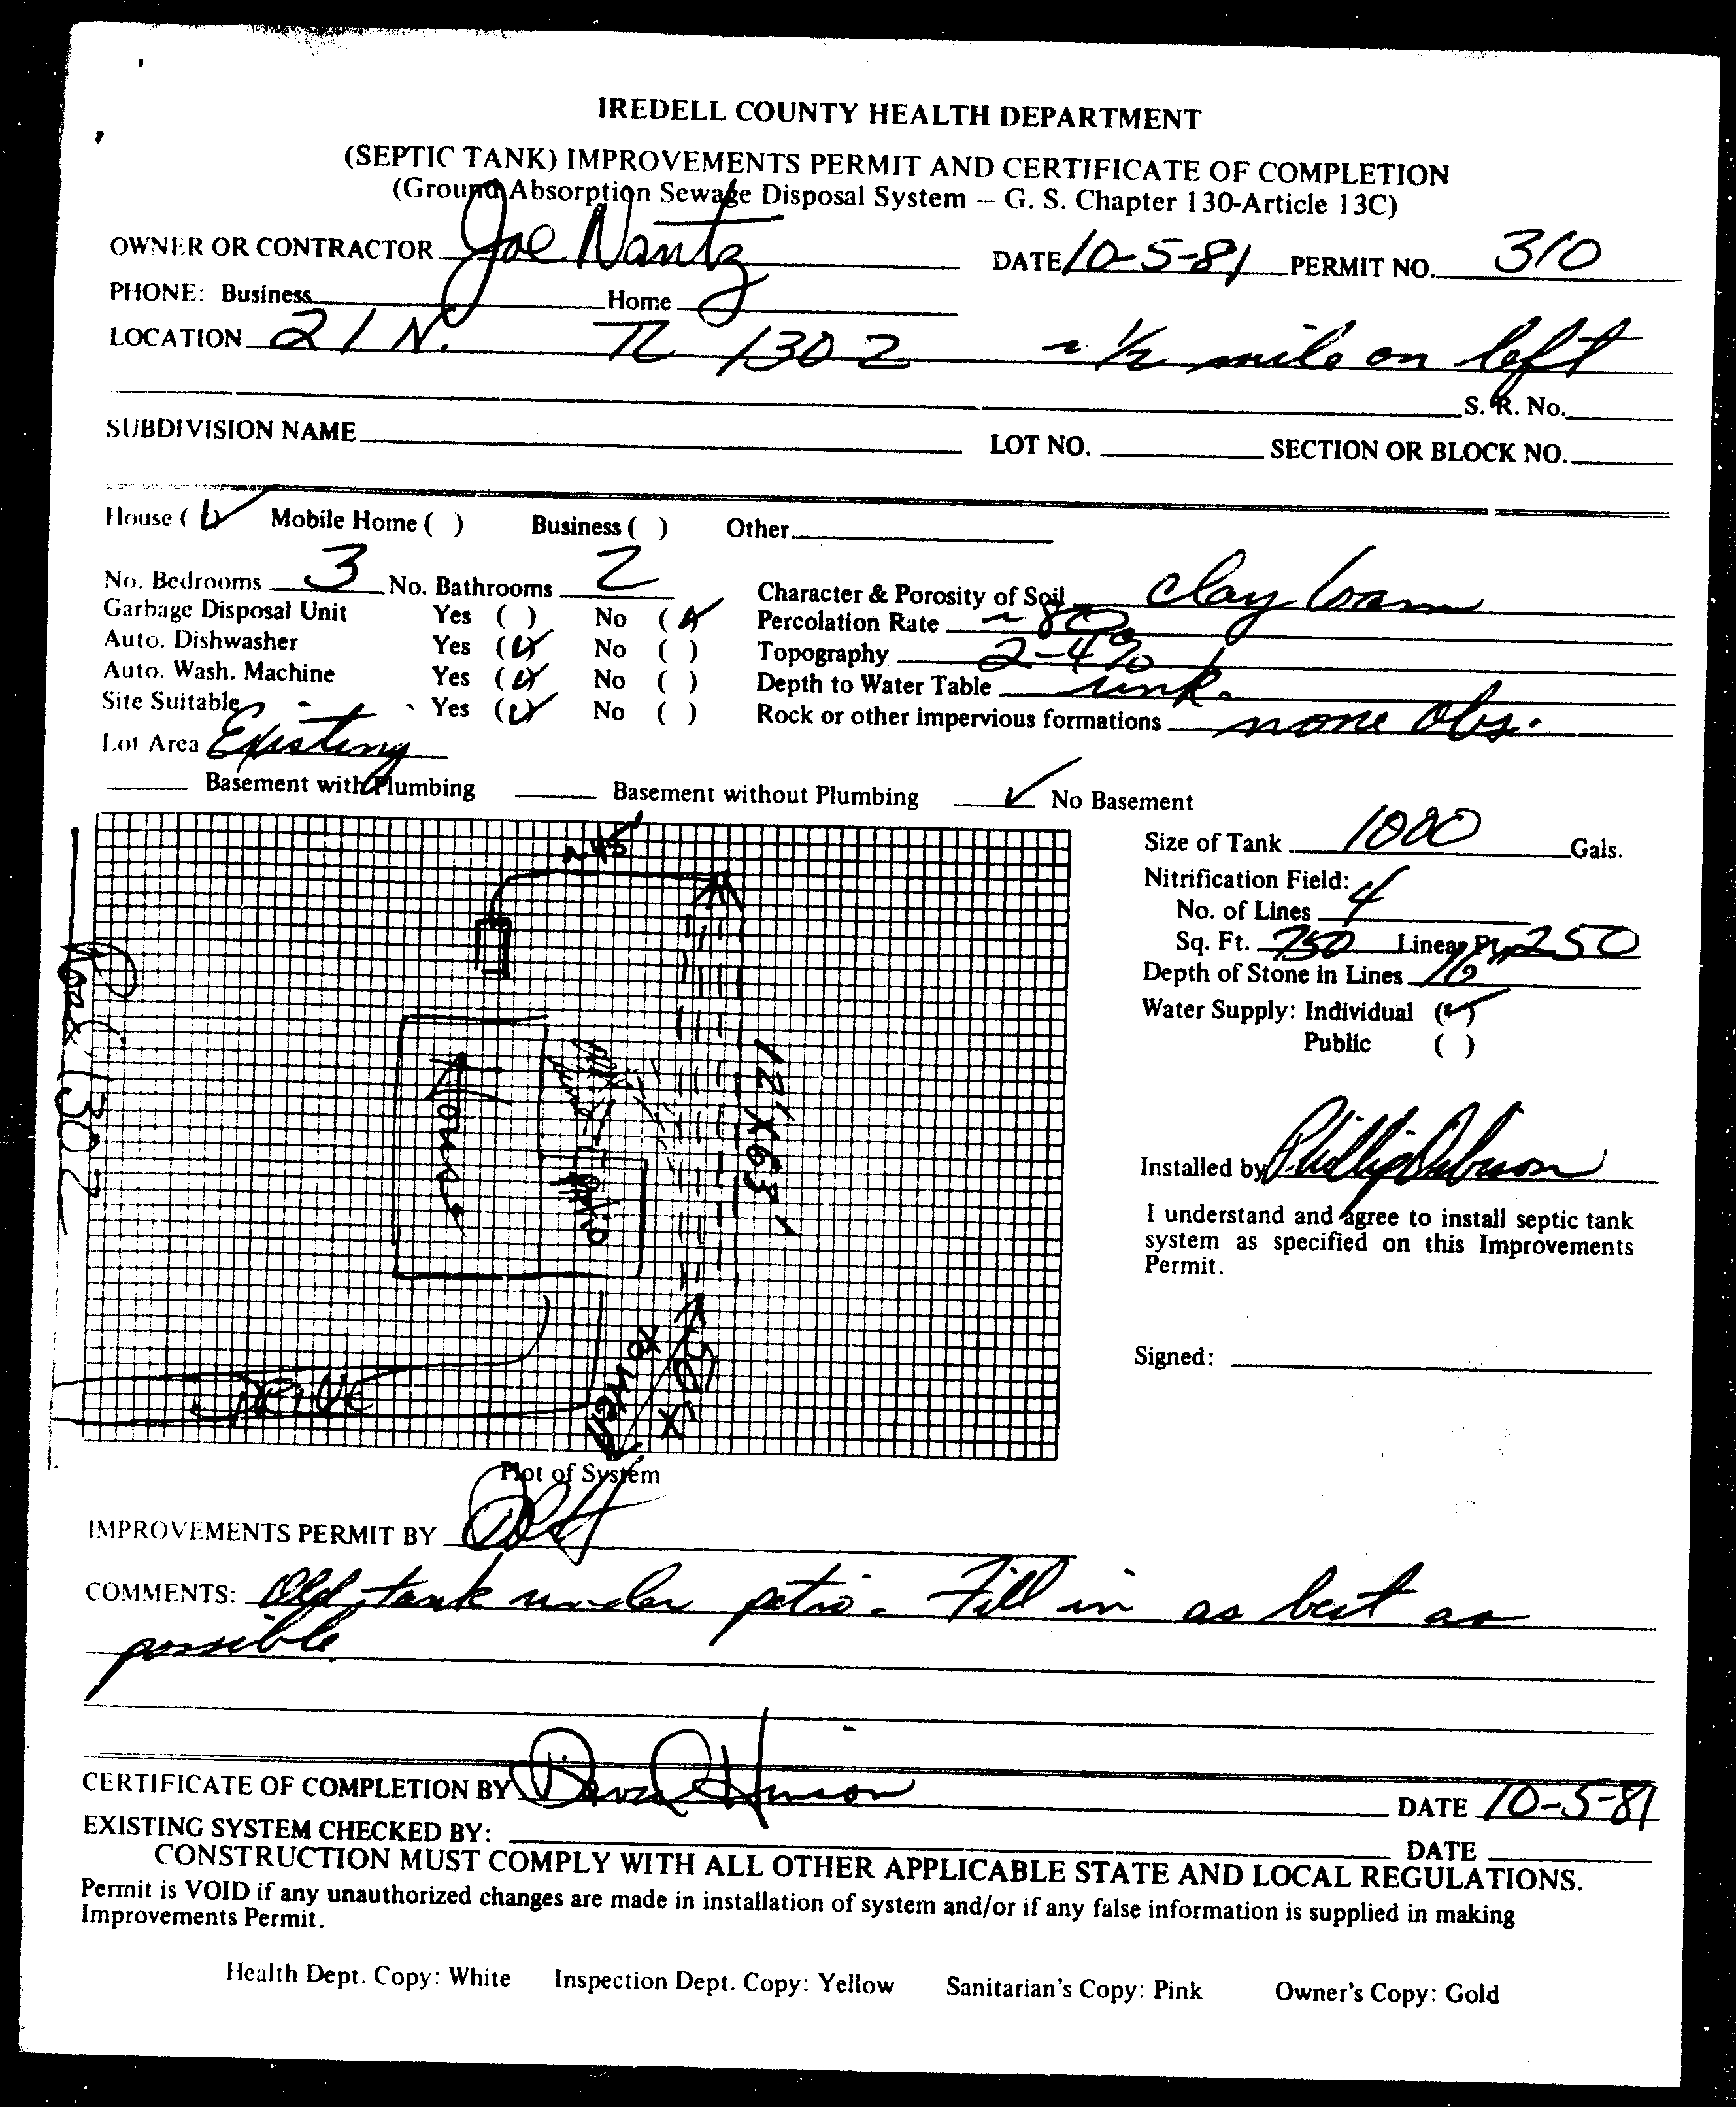 IREDELL COUNTY HEALTH DEPARTMENT
(SEPTIC TANK) IMPROVEMENTS PERMIT AND CERTIFICATE OF COMPLETION
(Ground Absorption Sewage Disposal System -- G. S. Chapter 130-Article 13C)
OWNER OR CONTRACTOR Joe Nantz DATE 10-5-81 PERMIT NO. 310
PHONE: Business Home
LOCATION 21 N. TL 1302 ~ 1/2 mile on left
S. R. No.
SUBDIVISION NAME LOT NO. SECTION OR BLOCK NO.
House (✓) Mobile Home ( ) Business ( ) Other
No. Bedrooms 3 No. Bathrooms 2 Character & Porosity of Soil clay loam
Garbage Disposal Unit Yes ( ) No (✓) Percolation Rate ~ 80
Auto. Dishwasher Yes (✓) No ( ) Topography 2-4%
Auto. Wash. Machine Yes (✓) No ( ) Depth to Water Table unk.
Site Suitable Yes (✓) No ( ) Rock or other impervious formations none obs.
Lot Area Existing
Basement with Plumbing Basement without Plumbing ✓ No Basement
Size of Tank 1000 Gals.
Nitrification Field:
No. of Lines 4
Sq. Ft. 750 Linear Ft. 250
Depth of Stone in Lines 16
Water Supply: Individual (✓)
Public ( )
~45'
Road 1302
House
Patio
12'X63'
DRIVE
to Well
Installed by Phillip
I understand and agree to install septic tank
system as specified on this Improvements
Permit.
Signed:
Plot of System
IMPROVEMENTS PERMIT BY
COMMENTS: Old tank under patio. Fill in as best as
possible
CERTIFICATE OF COMPLETION BY David Hinson DATE 10-5-81
EXISTING SYSTEM CHECKED BY: DATE
CONSTRUCTION MUST COMPLY WITH ALL OTHER APPLICABLE STATE AND LOCAL REGULATIONS.
Permit is VOID if any unauthorized changes are made in installation of system and/or if any false information is supplied in making
Improvements Permit.
Health Dept. Copy: White Inspection Dept. Copy: Yellow Sanitarian's Copy: Pink Owner's Copy: Gold